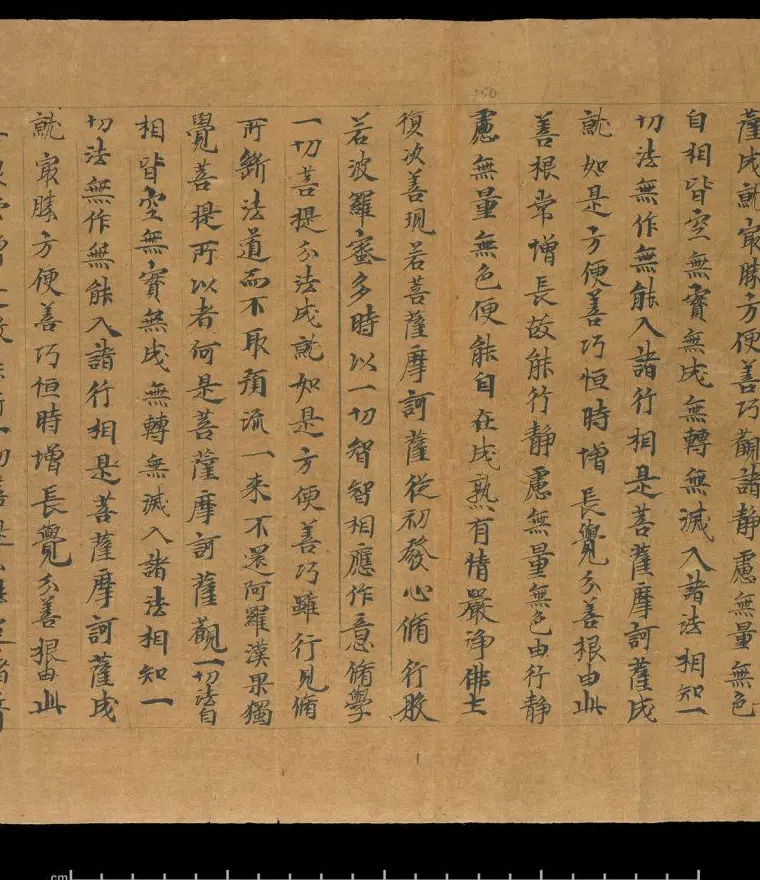 薩成就㝡勝方便善巧觀諸靜慮無量無色
自相皆空無實無成無轉無滅入諸法相知一
切法無作無能入諸行相是菩薩摩訶薩成
就如是方便善巧恒時増長覺分善根由此
善根常増長故能行靜慮無量無色由行靜
慮無量無色便能自在成熟有情嚴淨佛土
復次善現若菩薩摩訶薩從初發心脩行般
若波羅蜜多時以一切智智相應作意脩學
一切菩提分法成就如是方便善巧雖行見脩
所斷法道而不取預流一来不還阿羅漢果獨
覺菩提所以者何是菩薩摩訶薩觀一切法自
相皆空無實無成無轉無滅入諸法相知一
切法無作無能入諸行相是菩薩摩訶薩成
就㝡勝方便善巧恒時増長覺分善根由此
250
cm